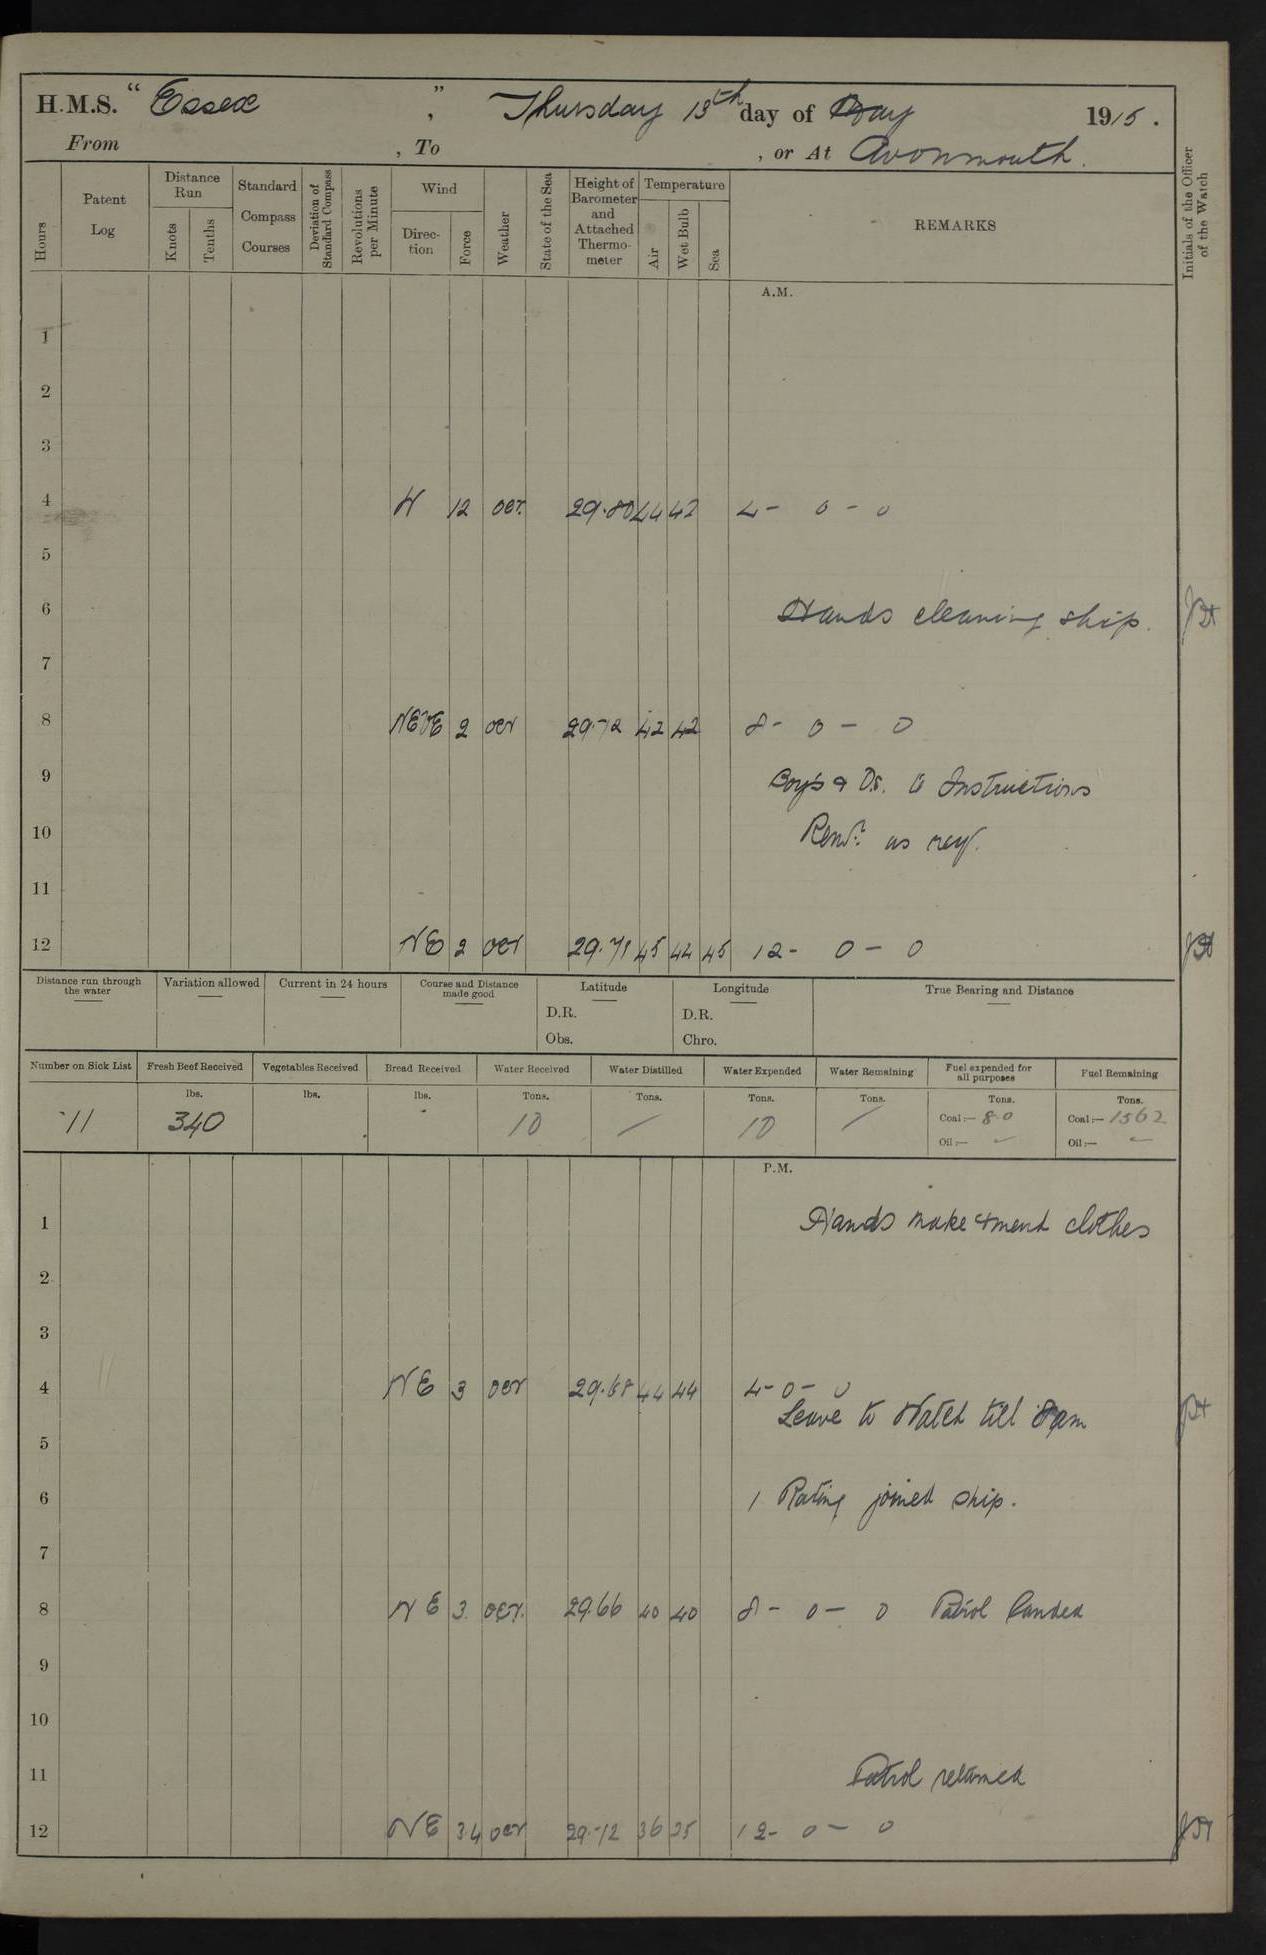 H.M.S. "Essex", Thursday 13th day of May 1915.
From , To , or At Avonmouth.
Hours Patent Log Distance Run Knots Tenths Standard Compass Courses Deviation of Standard Compass Revolutions per Minute Wind Direction Force Weather State of the Sea Height of Barometer and Attached Thermometer Temperature Air Wet Bulb Sea REMARKS Initials of the Officer of the Watch
A.M.
1
2
3
4 N 12 ocr. 29.80 44 42 4- 0 - 0
5
6 Hands cleaning ship.
7
8 NE'lE 2 ocr 29.72 42 42 8- 0 - 0
9 Boys & Ds. to Instructions
10 Remdr. as req.
11
12 NE 2 ocr 29.71 45 44 45 12- 0 - 0
Distance run through the water Variation allowed Current in 24 hours Course and Distance made good Latitude Longitude True Bearing and Distance
D.R. D.R.
Obs. Chro.
Number on Sick List Fresh Beef Received Vegetables Received Bread Received Water Received Water Distilled Water Expended Water Remaining Fuel expended for all purposes Fuel Remaining
lbs. lbs. lbs. Tons. Tons. Tons. Tons. Tons. Tons.
11 340 10 / 10 / Coal:— 80 Coal:— 1562
Oil:— Oil:—
P.M.
1 Hands make & mend clothes
2
3
4 NE 3 ocr 29.68 44 44 4- 0 - 0
Leave to Watch till 8am
5
6 1 Rating joined ship.
7
8 NE 3 ocr. 29.66 40 40 8- 0 - 0 Patrol landed
9
10
11 Patrol returned
12 NE 3.4 ocr 29.72 36 35 12- 0 - 0